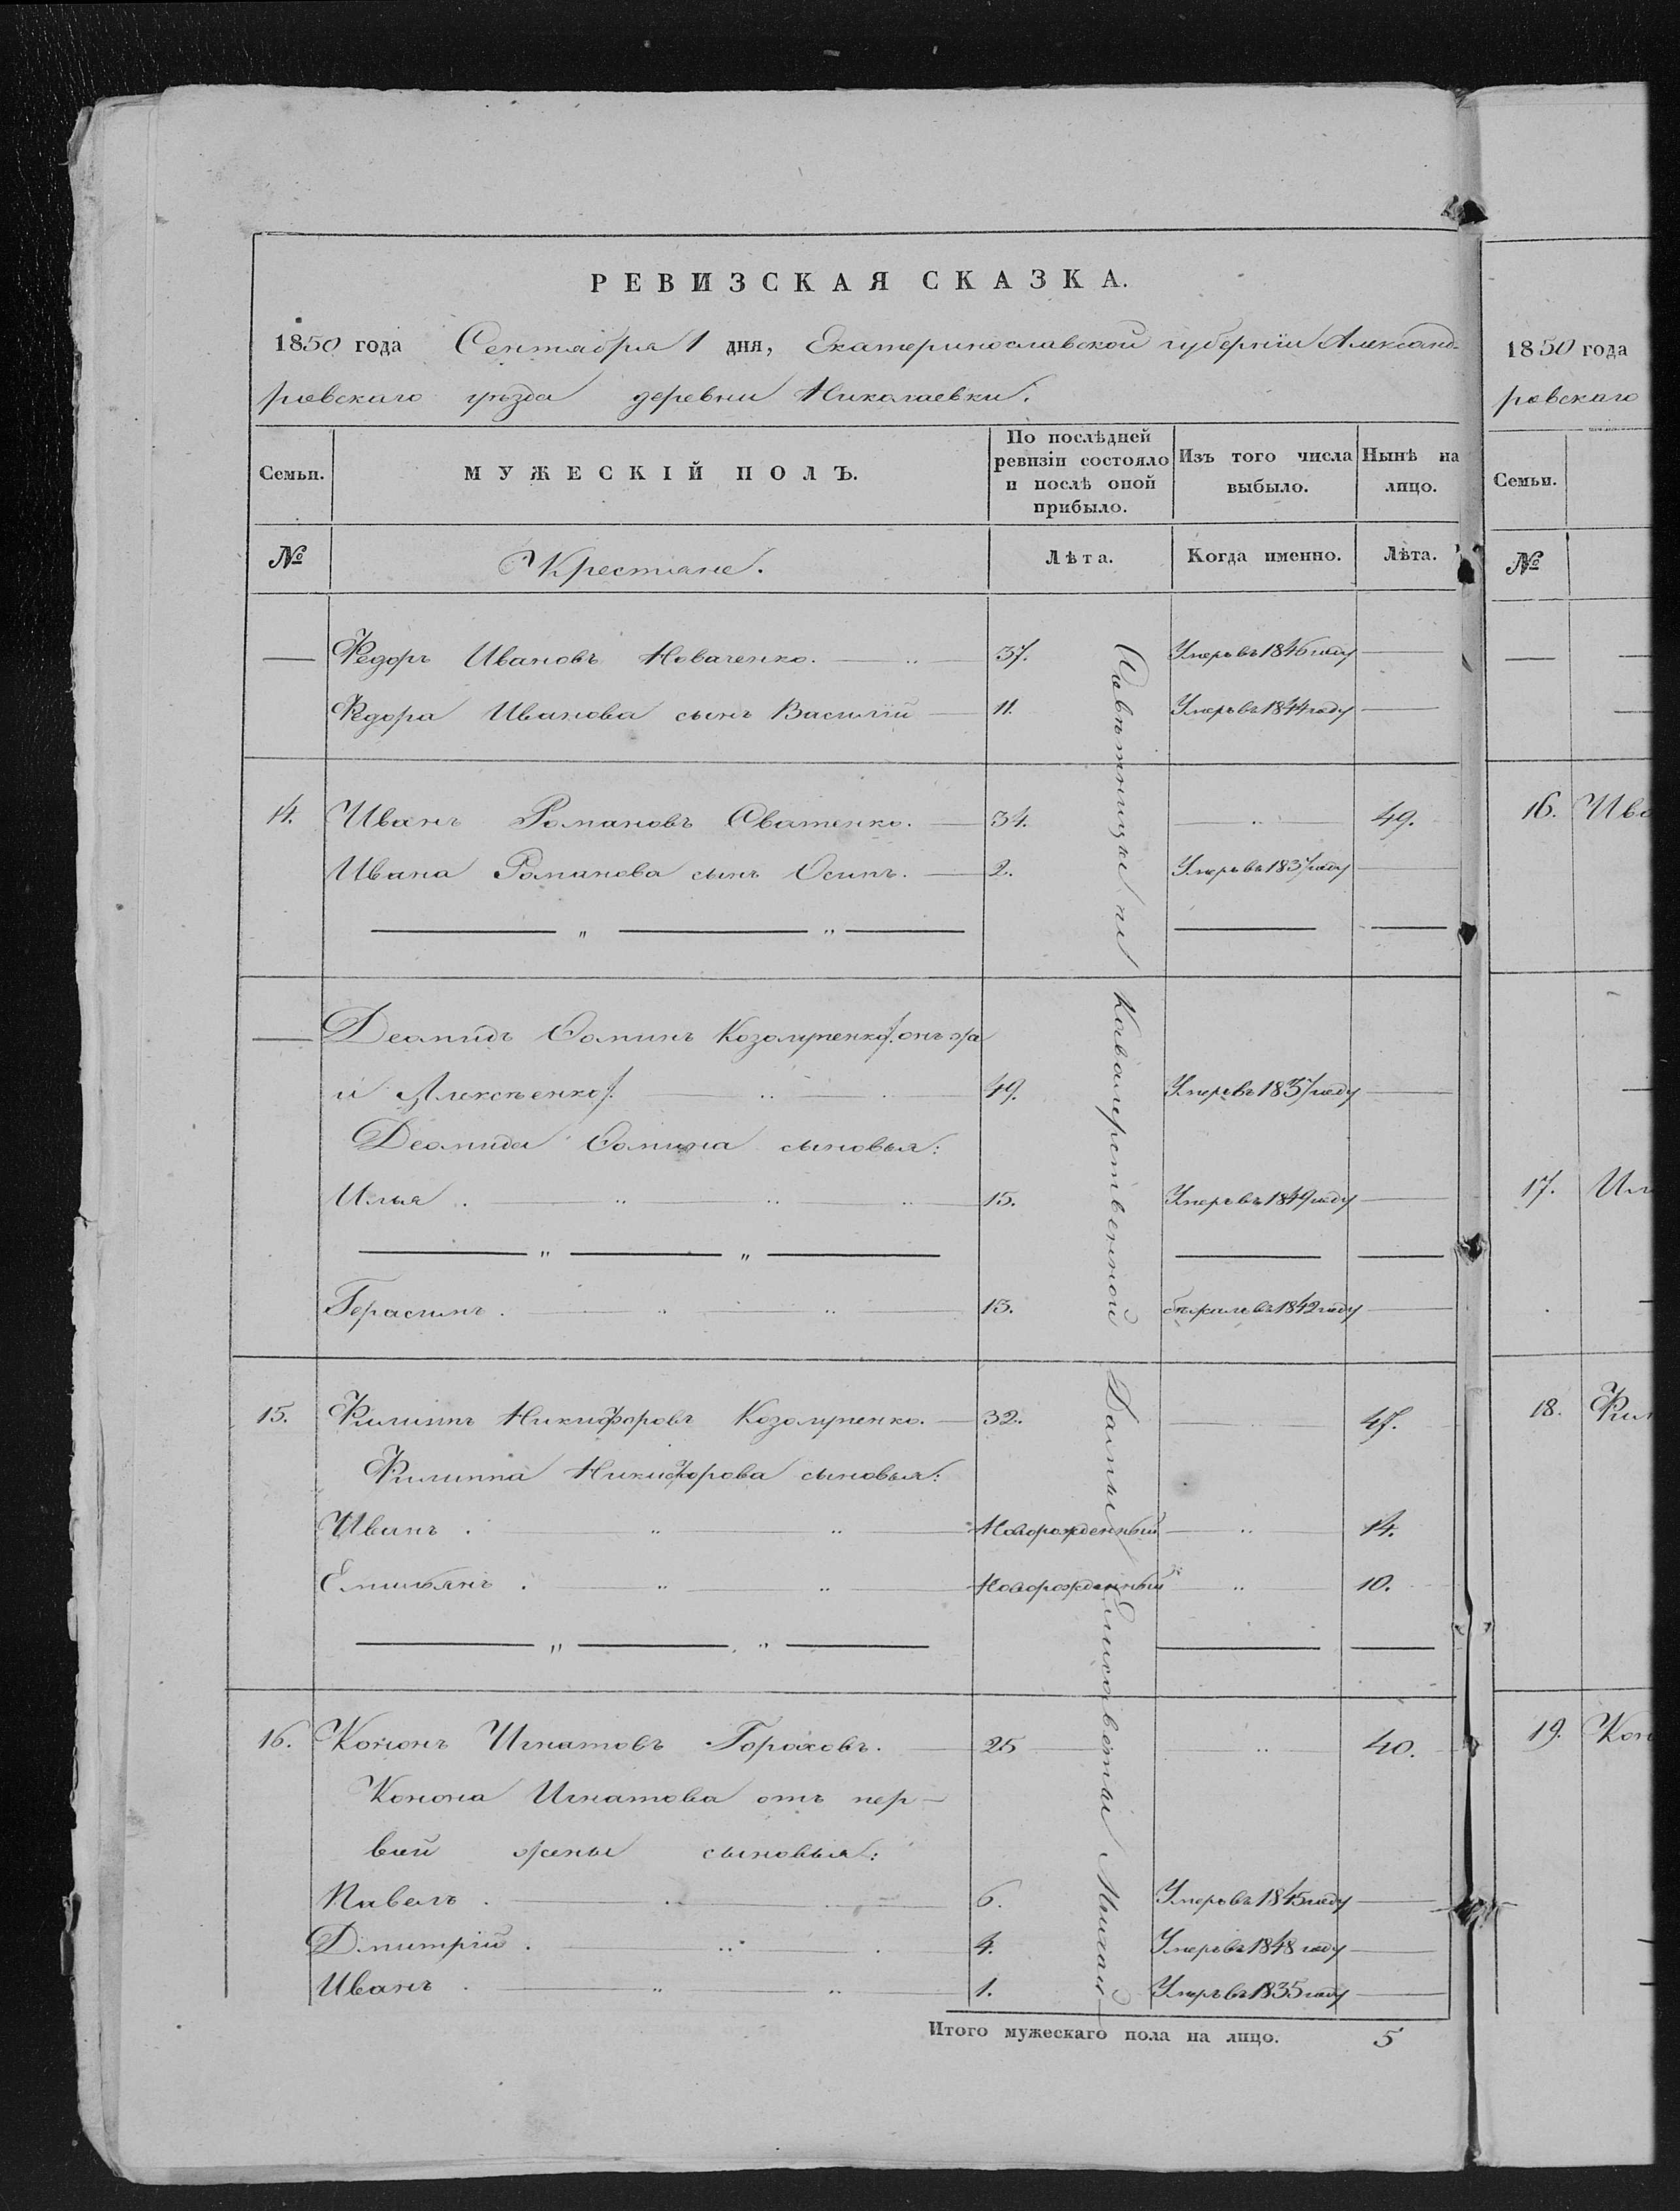 РЕВИЗСКАЯ СКАЗКА.
1850 года Сентября 1 дня, Екатеринославской губерніи Александ-
ровскаго уѣзда деревни Николаевки.
Семьи.
МУЖЕСКІЙ ПОЛЪ.
По послѣдней
ревизіи состояло
и послѣ оной
прибыло.
Изъ того числа
выбыло.
Нынѣ на
лицо.
№ Крестяне. Лѣта. Когда именно. Лѣта.
— Федоръ Ивановъ Новаченко. — 37. Умеръ въ 1846 году —
Федора Иванова сынъ Василій — 11. Умеръ въ 1844 году —
14. Иванъ Романовъ Сватенко. — 34. — 49.
Ивана Романова сынъ Осипъ. — 2. Умеръ въ 1837 году —
— Деомидъ Фоминъ Козолупенко /. онъ жа
и Алексѣенко /. — 49. Умеръ въ 1837 году —
Деомида Фомина сыновья:
Илья . — 15. Умеръ въ 1849 году —
Герасимъ . — 13. бѣжалъ въ 1842 году —
15. Филиппъ Никифоровъ Козолупенко. — 32. — 47.
Филиппа Никифорова сыновья:
Иванъ . — Новорожденный — 14.
Емильянъ . — Новорожденный — 10.
16. Кононъ Игнатовъ Гороховъ. — 25 — 40.
Конона Игнатова отъ пер-
вой жены сыновья:
Павелъ . — 6. Умеръ въ 1845 году —
Дмитрій . — 4. Умеръ въ 1848 году —
Иванъ . — 1. Умеръ въ 1835 году —
Итого мужескаго пола на лицо. 5
Кавалерственной Дамы Елисаветы
1850 года
ровскаго
Семьи.
№
16. Ива
17. Ил
18. Фил
19. Кон